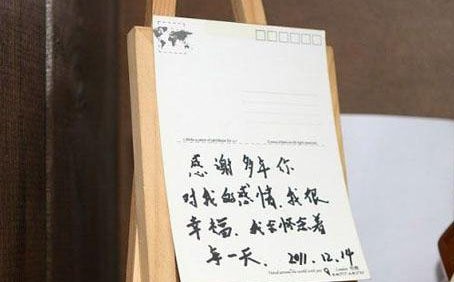 感谢多年你
对我的感情,我很
幸福,我会怀念着
每一天,2011.12.14